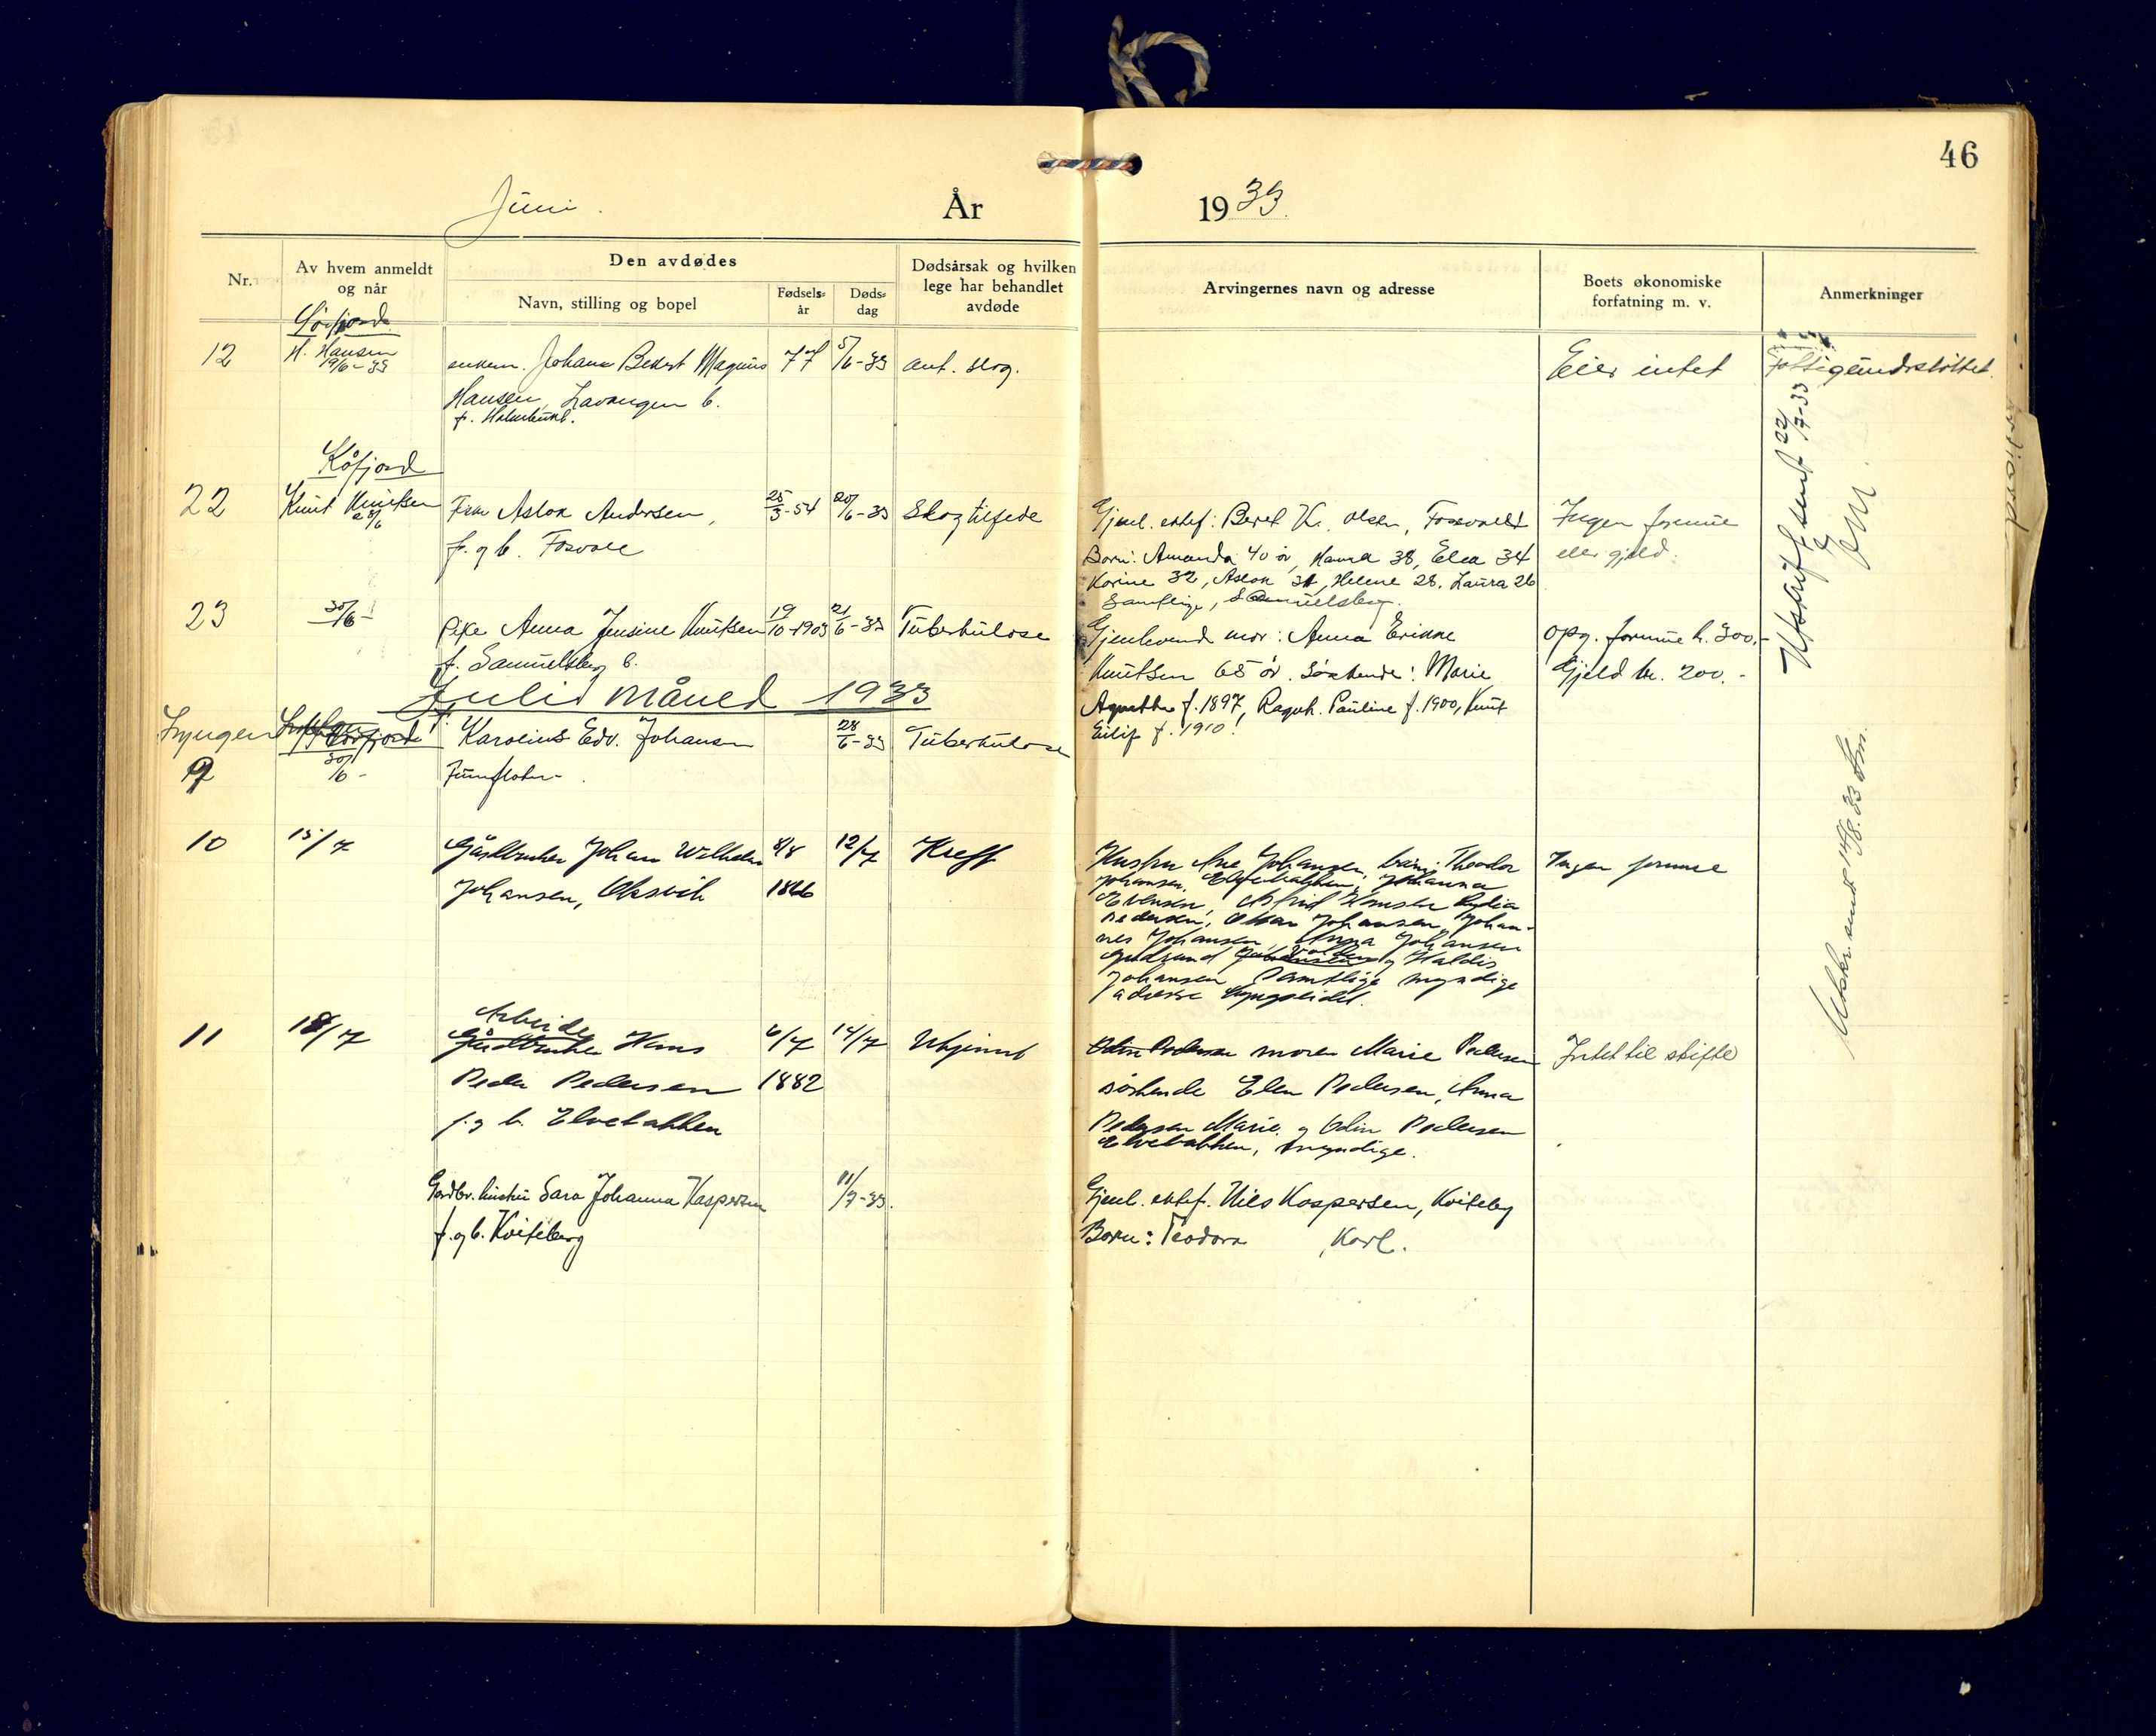 46
Juni.
År
1933.
Nr.
Av hvem anmeldt
og når
Den avdødes
Navn, stilling og bopel
Fødsels-
år
Døds-
dag
Dødsårsak og hvilken
lege har behandlet
avdøde
Arvingernes navn og adresse
Boets økonomiske
forfatning m. v.
Anmerkninger
Sörfjord
12 H. Hansen enkem. Johans Bekert Magnus 77 5/6-33 ant. slag. Eier intet Fattigunderstöttet.
19/6-33
Hansen, Lavangen b.
f.
Utskrift sent 22/7-33
Kåfjord
22 Knut Knutsen Aslak Andersen, 25/3-54 20/6-33 Slagtilfede Gjenl. ektef: Beret Kr. Olsen, Fossvoll Ingen formue
f. og b. Fosvoll
Born: Amanda 40 år, Hanna 38, Elea 34 eller gjeld.
Korine 32, Aslak 31, Helene 28. Laura 26
Samtlige, Samuelsberg.
23 30/6- Pike Anna Jensine Knutsen 19/10-1903 21/6-33 Tuberkulose Gjenlevend mor: Anna Erikke opg. formue k. 300.-
f. Samuelsberg b. Knutsen 65 år. Söskende: Marie Gjeld kr. 200.-
Agnethe f. 1897, Ragnh. Pauline f. 1900, Knut
Eilif f. 1910.
Juli Måned 1933
Lyngen Karolius Edv. Johansen 28/6-33 Tuberkulose
9 30/6-
10 15/7 Gårdbruker Johan Wilhelm 8/8 12/7 Kreft Hustru Ane Johansen, barn: Theodor Ingen formue
Johansen, Oksvik 1866 Johansen, Elvebakken, Johanna
Evensen, Astrid Hansen Lydia
Pedersen, Oskar Johansen, Johan-
nes Johansen, Anna Johansen
Gudrund og Haldis
Johansen Samtlige myndige
adresse Lyngseidet.
Utskr. sendt 14/8. 33
Arbeider
11 18/7 Gårdbruker Hans 6/7 14/7 Ukjennt Odin Pedersen moren Marie Pedersen Intet til skifte
Peder Pedersen 1882 söskende Elen Pedersen, Anna
f. og b. Elvebakken Pedersen Marie og Odin Pedersen
Elvebakken, myndige.
Gårdbr. hustru Sara Johanna Kaspersen 11/7-33. Gjenl. ektef. Nils Kaspersen, Kviteberg
f. og b. Kviteberg Born: Teodora, Karl.